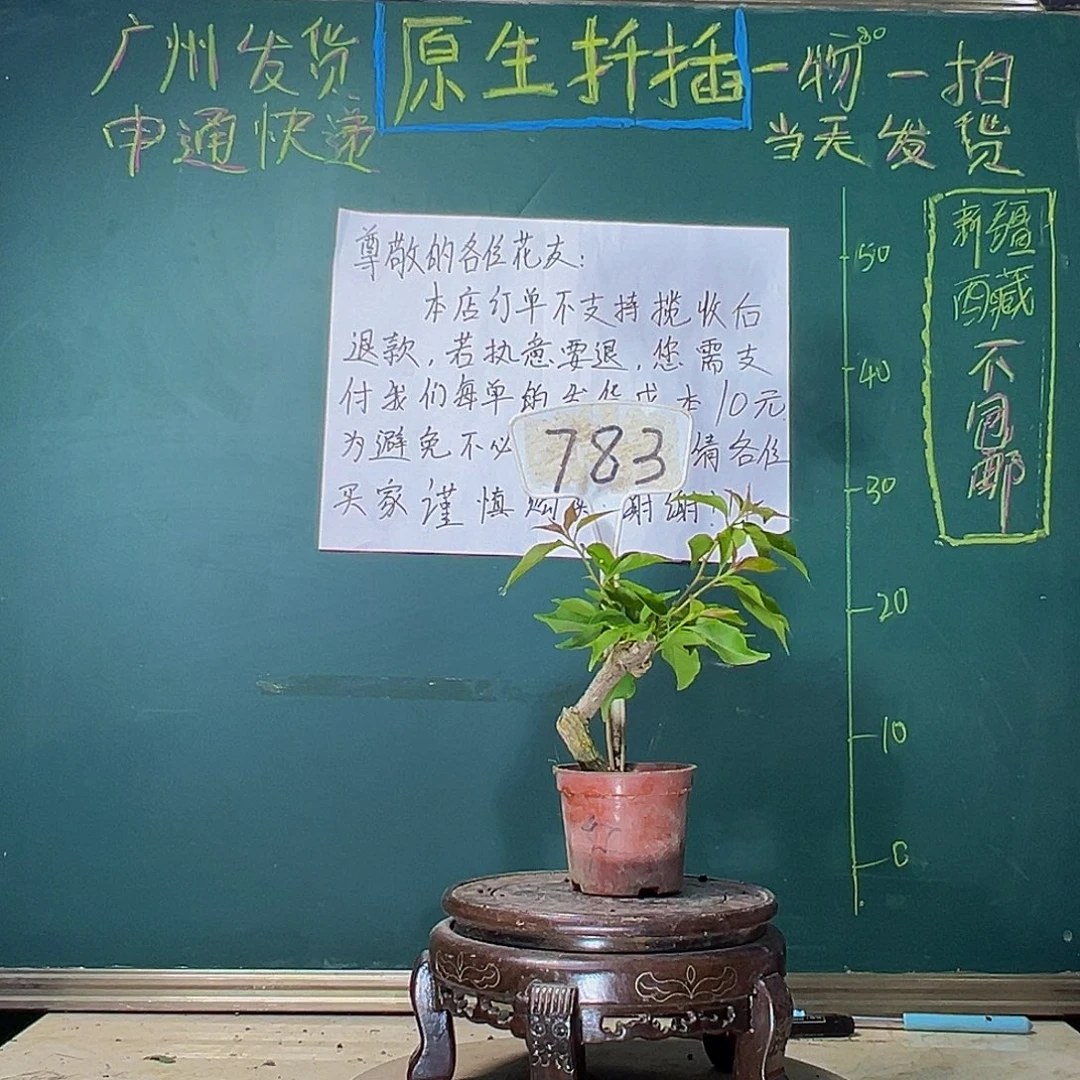 广州发货
原生扦插
一物一拍
申通快递
当天发货
尊敬的各位花友:
本店订单不支持揽收后
退款,若执意要退,您需支
付我们每单的发货成本10元
为避免不必 请各位
买家谨慎购买.谢谢!
783
新疆
西藏
不包邮
50
40
30
20
10
0